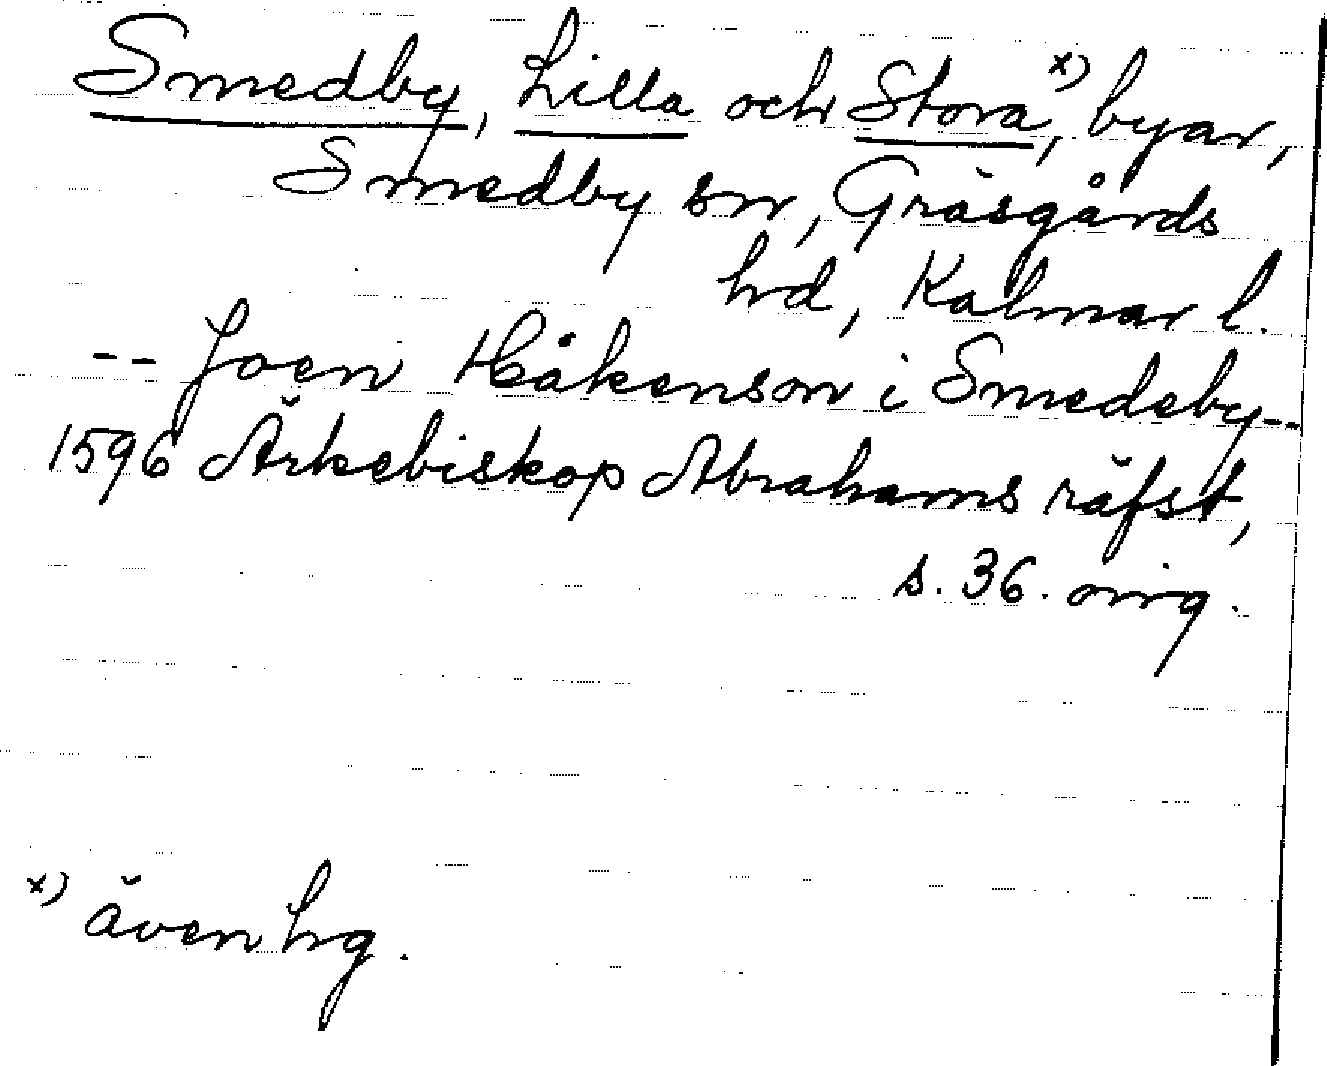 Smedby, Lilla och Stora x), byar,
Smedby sn, Gräsgårds
hd, Kalmar l.
-- Joen Håkenson i Smedeby--
1596 Ärkebiskop Abrahams räfst,
s. 36. orig.
x) även hg.